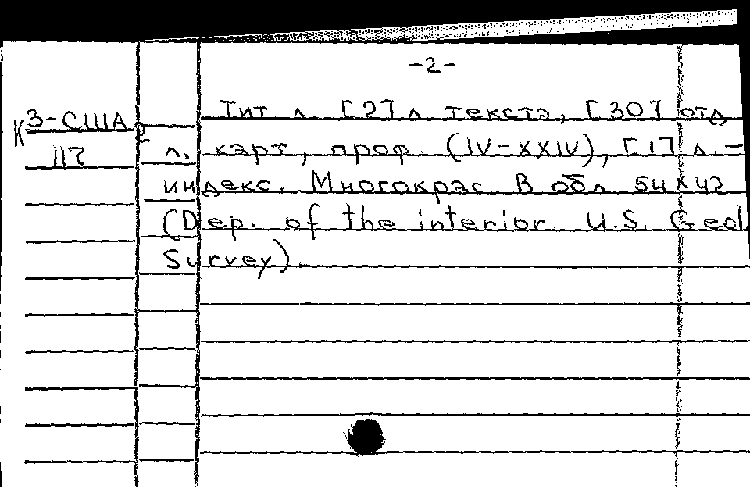 -2-
К З-США Тит л. [2] л текста, [30] отд
112 л. карт, проф. (IV-XXIV), [1] л. -
индекс. Многокрас В обл 54×42
(Dep. of the interior U.S. Geol
Survey).